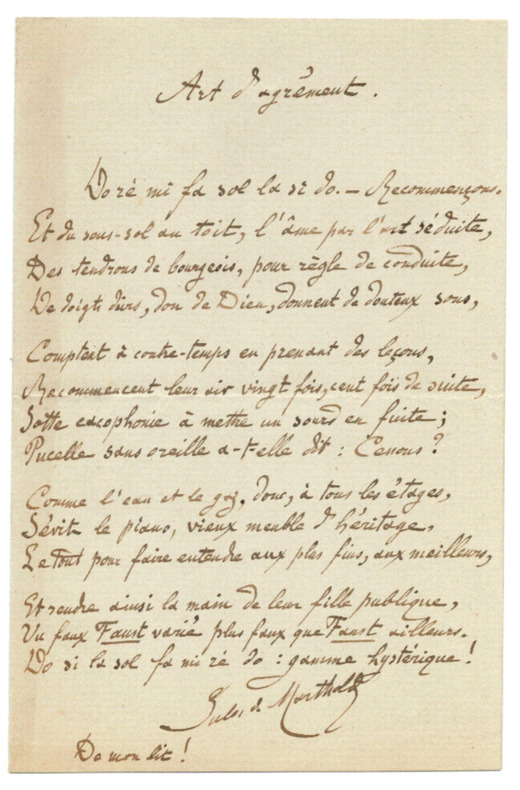 Art d'agrément.
Do ré mi fa sol la si do. – Recommençons.
Et du sous-sol au toit, l'âme par l'art séduite,
Des tendrons de bourgeois, pour règle de conduite,
De doigts durs, don de Dieu, donnent de douteux sons,
Comptent à contre-temps en prenant des leçons,
Recommencent leur air vingt fois, cent fois de suite,
Sotte cacophonie à mettre un sourd en fuite ;
Pucelle sans oreille a-t-elle dit :
Comme l'eau et le gaz, donc, à tous les étages,
Sévit le piano, vieux meuble d'héritage,
Le tout pour faire entendre aux plus fins, aux meilleurs,
Et rendre ainsi la main de leur fille publique,
Un faux Faust varié plus faux que Faust ailleurs.
Do si la sol fa mi ré do : gamme hystérique !
Jules de Marthold
De mon lit !